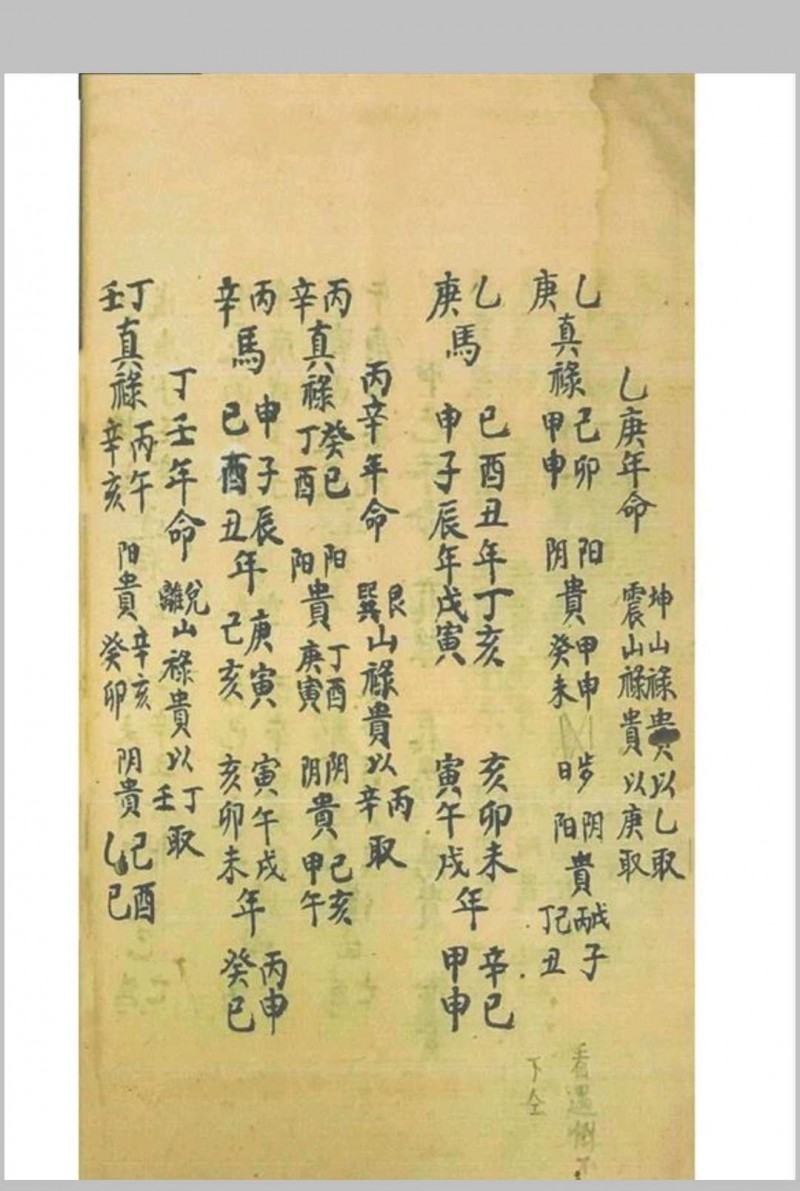 乙庚年命 坤山祿貴以乙取 震山祿貴以庚取
乙庚真祿 己卯 甲申 阳阴貴 甲申 癸未 日 阴阳貴 子 丁 丑
乙庚馬 巳酉丑年丁亥 申子辰年戊寅 亥卯未 寅午戌年 辛巳 甲申
丙辛年命 艮巽山祿貴以丙辛取
丙辛真祿 癸巳 丁酉 阳阳貴 丁酉 庚寅 阴阴貴 己亥 甲午
丙辛馬 申子辰 巳酉丑年 庚寅 己亥 寅午戌 亥卯未年 丙申 癸巳
丁壬年命 兌離山祿貴以丁壬取
丁壬真祿 丙午 辛亥 阳貴 辛亥 癸卯 阴貴 己酉 乙巳
看遇
下仝